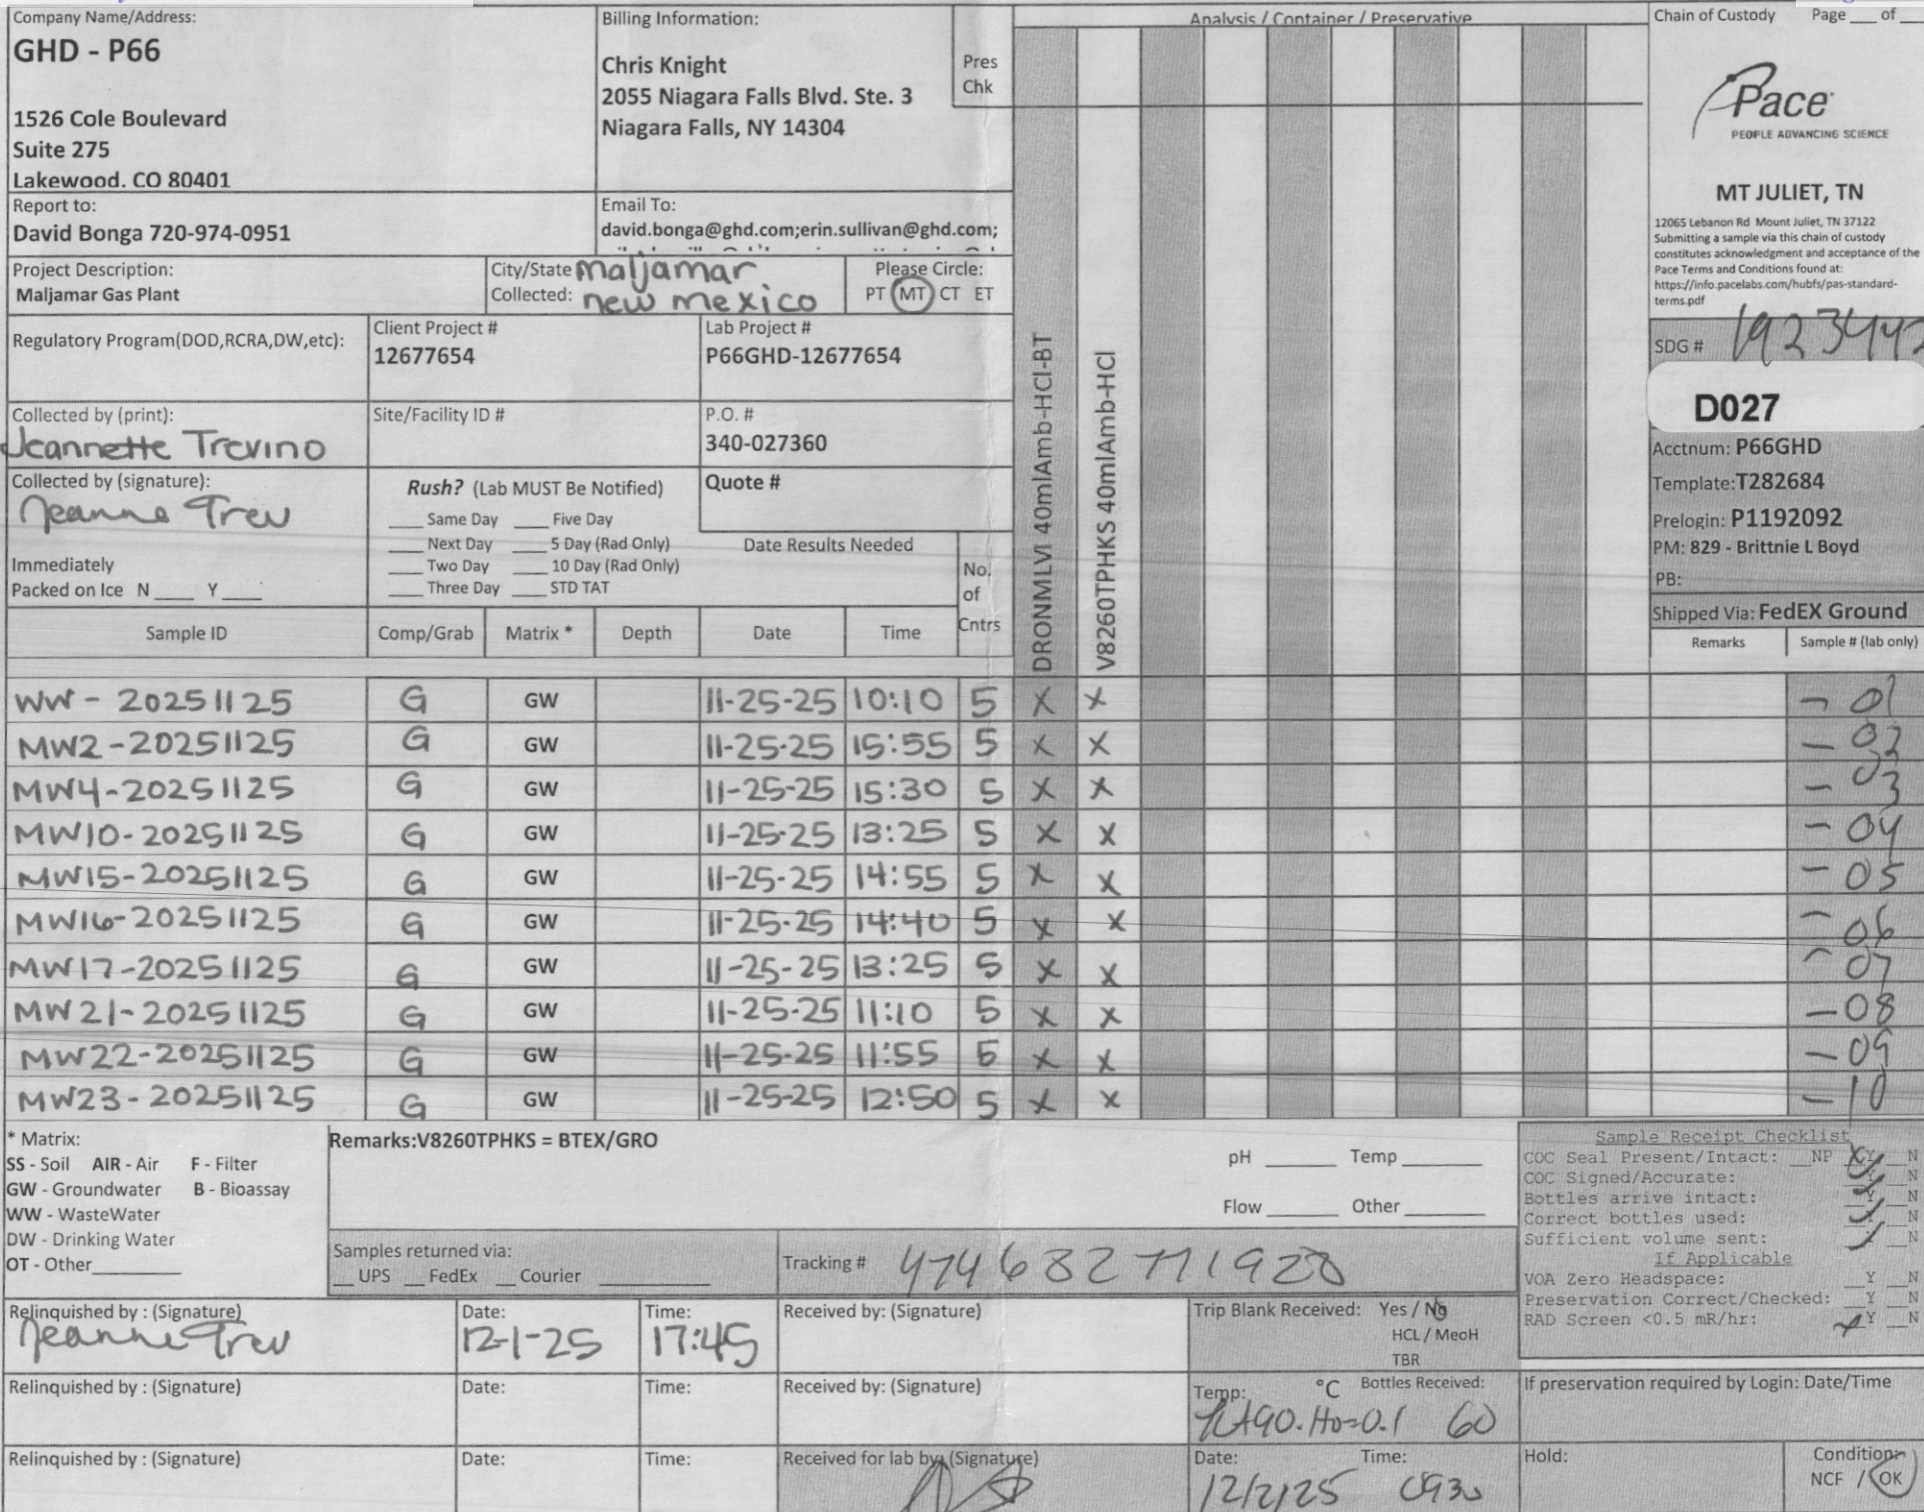 Company Name/Address:
GHD - P66
1526 Cole Boulevard
Suite 275
Lakewood, CO 80401
Billing Information:
Chris Knight
2055 Niagara Falls Blvd. Ste. 3
Niagara Falls, NY 14304
Pres
Chk
Analysis / Container / Preservative
Chain of Custody Page ___ of
Pace
PEOPLE ADVANCING SCIENCE
MT JULIET, TN
12065 Lebanon Rd Mount Juliet, TN 37122
Submitting a sample via this chain of custody
constitutes acknowledgment and acceptance of the
Pace Terms and Conditions found at:
https://info.pacelabs.com/hubfs/pas-standard-
terms.pdf
Report to:
David Bonga 720-974-0951
Email To:
david.bonga@ghd.com;erin.sullivan@ghd.com;
Project Description:
Maljamar Gas Plant
City/State
Collected:
maljamar
new mexico
Please Circle:
PT MT CT ET
Regulatory Program(DOD,RCRA,DW,etc):
Client Project #
12677654
Lab Project #
P66GHD-12677654
Collected by (print):
Jeannette Trevino
Site/Facility ID #
P.O. #
340-027360
Collected by (signature):
Jeanne Trev
Rush? (Lab MUST Be Notified)
___ Same Day ___ Five Day
___ Next Day ___ 5 Day (Rad Only)
___ Two Day ___ 10 Day (Rad Only)
___ Three Day ___ STD TAT
Quote #
Date Results Needed
Immediately
Packed on Ice N ____ Y ____
No.
of
Cntrs
DRONMLVI 40mlAmb-HCl-BT
V8260TPHKS 40mlAmb-HCl
SDG # 1923442
D027
Acctnum: P66GHD
Template:T282684
Prelogin: P1192092
PM: 829 - Brittnie L Boyd
PB:
Shipped Via: FedEX Ground
Sample ID Comp/Grab Matrix * Depth Date Time Remarks Sample # (lab only)
WW - 20251125 G GW 11-25-25 10:10 5 X X - 01
MW2-20251125 G GW 11-25-25 15:55 5 X X - 02
MW4-20251125 G GW 11-25-25 15:30 5 X X - 03
MW10-20251125 G GW 11-25-25 13:25 5 X X - 04
MW15-20251125 G GW 11-25-25 14:55 5 X X - 05
MW16-20251125 G GW 11-25-25 14:40 5 X X - 06
MW17-20251125 G GW 11-25-25 13:25 5 X X - 07
MW21-20251125 G GW 11-25-25 11:10 5 X X - 08
MW22-20251125 G GW 11-25-25 11:55 5 X X - 09
MW23-20251125 G GW 11-25-25 12:50 5 X X - 10
* Matrix:
SS - Soil AIR - Air F - Filter
GW - Groundwater B - Bioassay
WW - WasteWater
DW - Drinking Water
OT - Other
Remarks:V8260TPHKS = BTEX/GRO
pH ______ Temp ______
Flow ______ Other ______
Samples returned via:
__ UPS __ FedEx __ Courier
Tracking #
Sample Receipt Checklist
COC Seal Present/Intact: __NP Y __N
COC Signed/Accurate: Y __N
Bottles arrive intact: Y __N
Correct bottles used: Y __N
Sufficient volume sent: Y __N
If Applicable
VOA Zero Headspace: __Y __N
Preservation Correct/Checked: __Y __N
RAD Screen <0.5 mR/hr: Y __N
Relinquished by : (Signature)
Jeanne Trev
Date:
12-1-25
Time:
17:45
Received by: (Signature)
Trip Blank Received: Yes / No
HCL / MeoH
TBR
Relinquished by : (Signature) Date: Time: Received by: (Signature)
Temp: °C Bottles Received:
60
If preservation required by Login: Date/Time
Relinquished by : (Signature) Date: Time: Received for lab by: (Signature)
Date: Time:
12/2/25 0930
Hold:
Condition:
NCF / OK